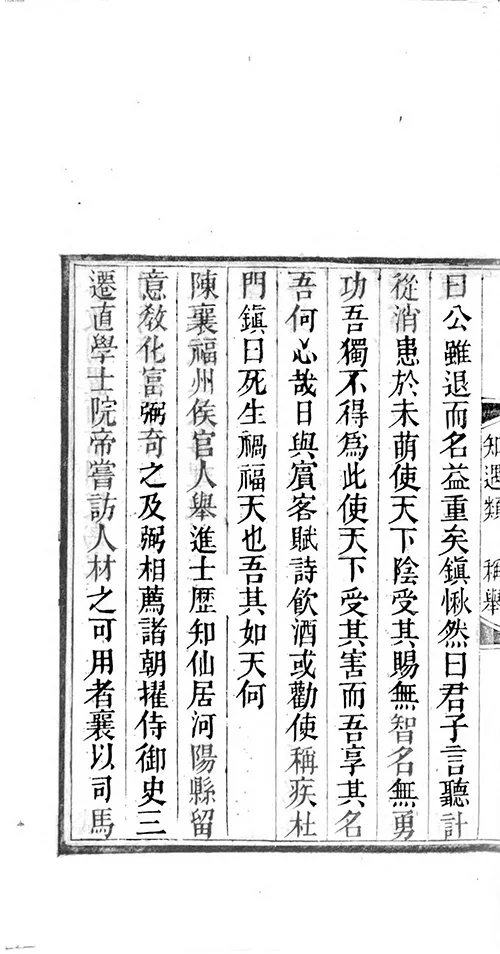 知遇類　稱舉
曰公雖退而名益重矣鎮愀然曰君子言聽計
從消患於未萌使天下陰受其賜無智名無勇
功吾獨不得為此使天下受其害而吾享其名
吾何心哉日與賓客賦詩飲酒或勸使稱疾杜
門鎮曰死生禍福天也吾其如天何
陳襄福州侯官人舉進士歷知仙居河陽縣留
意教化富弼奇之及弼相薦諸朝擢侍御史三
遷直學士院帝嘗訪人材之可用者襄以司馬